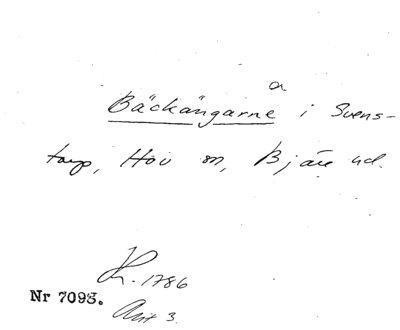 a
Bäckängarne i Svens-
torp, Hov sn, Bjäre hd.
H. 1786
Nr 7093.
Akt 3.